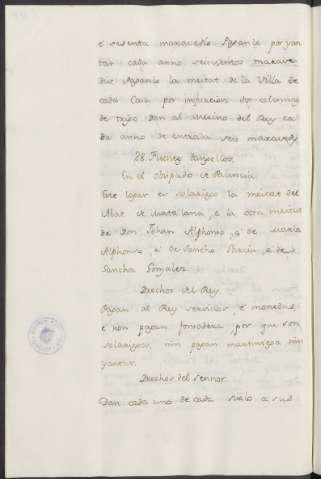 e sesenta maravedis Aponle por yan
tar cada anno seiscientos marave
dis Aponle la meitat de la Villa de
cada Casa por infurcion dos celemines
de trigo Dan al Merino del Rey ca
da anno de entrada seis maravedis
28. Fuentes
En el obispado de Palencia
Este logar es solariego la meitat del
Abat de Matallana, e la otra meitat
de Don Johan Alphonso, e de Maria
Alphonso, e de Sancho Garcia, e de
Sancha Gonzalez
Derechos del Rey
Pagan al Rey servicios, e monedas
e non pagan fonsadera, por que son
solariegos, nin pagan martiniega nin
yantar.
Derechos del Sennor
Dan cada uno de cada suelo a sus